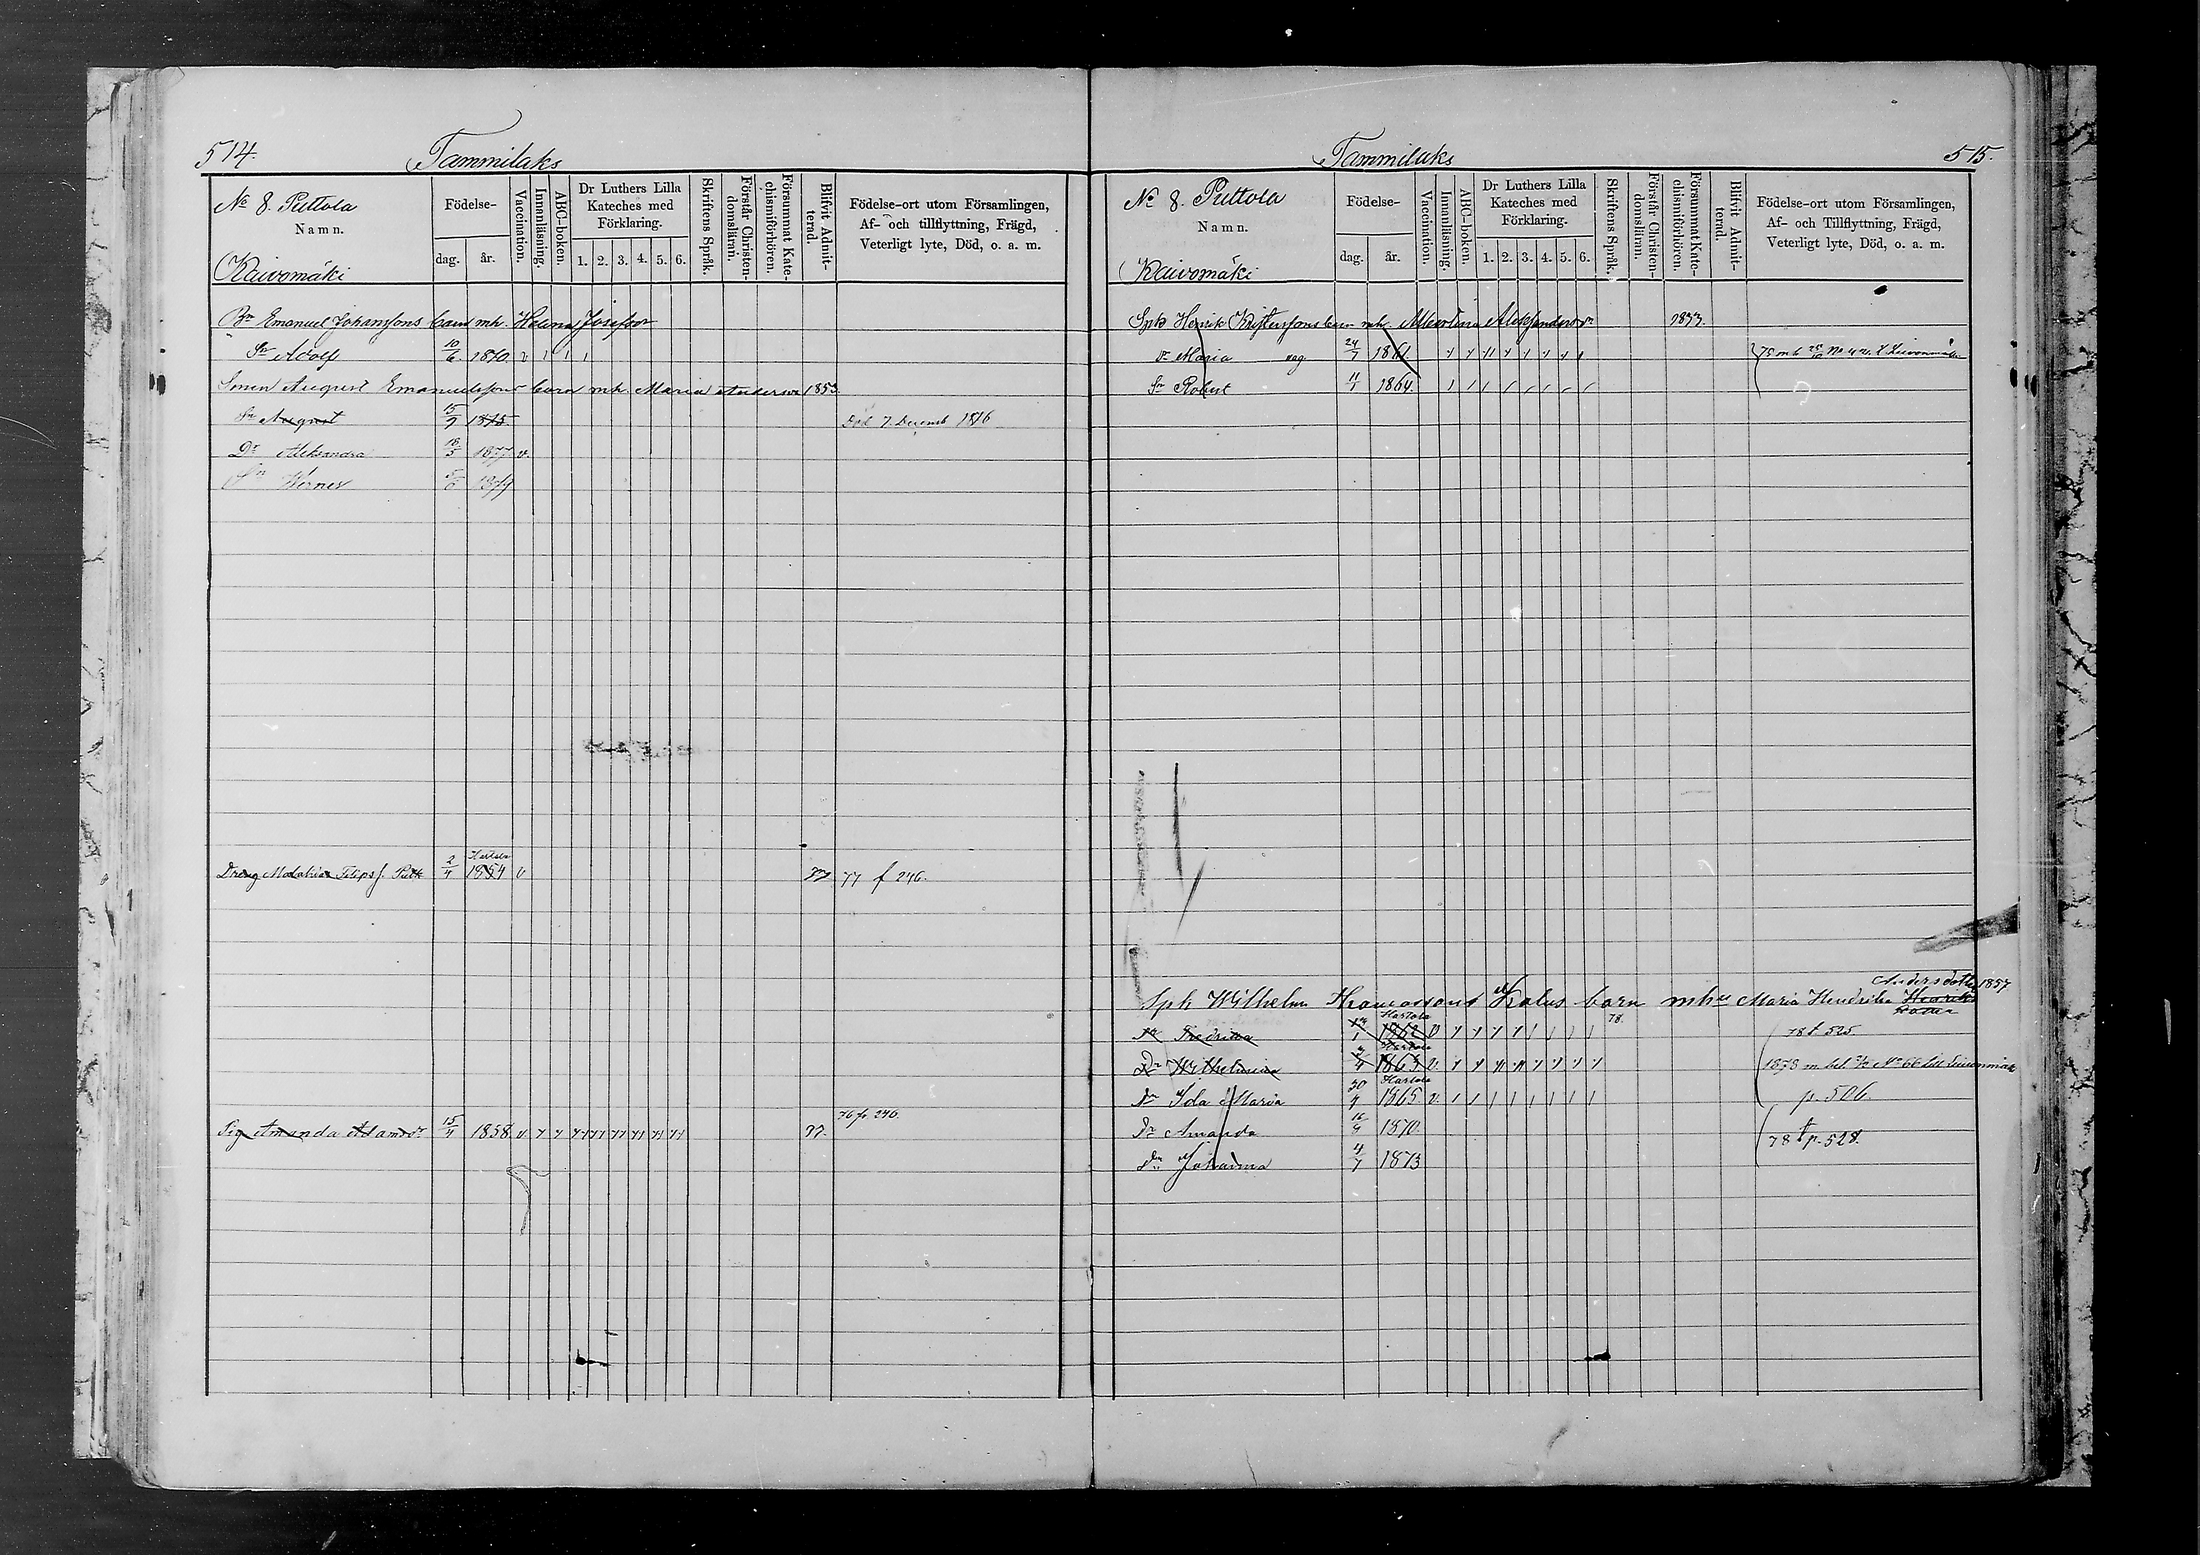 514. Tammilaks
No 8. Puttola
Namn.
Kaivomäki
Födelse-
dag. år.
Vaccination.
Innanläsning.
ABC-boken.
Dr Luthers Lilla
Kateches med
Förklaring.
1. 2. 3. 4. 5. 6.
Skriftens Språk.
Förstår Christen-
domsläran.
Försummat Kate-
chismiförhören.
Blifvit Admit-
terad.
Födelse-ort utom Församlingen,
Af- och tillflyttning, Frägd,
Veterligt lyte, Död, o. a. m.
Bn Emanuel Johanssons barn mh. Helena Josefsdr
Sn Adolf 10/6 1860. v
Sonen August Emanuelssons barn mh. Maria Andersdr 1853
Sn August 15/9 1875. Död 7. Decemb 1876
Dr Aleksandra 18/5 1877 v.
Sn Werner
Dreng Malakias Filipsf. 2/4 Hartola 1854 v 77 77 f 246.
76 fr 246.
Pig Amanda Adamsdr 15/4 1858. v 77.
Tammilaks 515.
No 8. Puttola
Namn.
Kaivomäki
Födelse-
dag. år.
Vaccination.
Innanläsning.
ABC-boken.
Dr Luthers Lilla
Kateches med
Förklaring.
1. 2. 3. 4. 5. 6.
Skriftens Språk.
Förstår Christen-
domsläran.
Försummat Kate-
chismiförhören.
Blifvit Admit-
terad.
Födelse-ort utom Församlingen,
Af- och Tillflyttning, Frägd,
Veterligt lyte, Död, o. a. m.
Spk Henrik Kristerssons barn mh. Albertina Aleksandersdr 1833.
Dr Maria 24/7 1861.
Sn Robert 11/1 1864.
Andersdotter 1857
Spk Wilhelm barn mh Maria Hendrika Henriks
dotter
Dr Fredrika Hartola 1862 v 78. 78 f. 525.
Dr Wilhelmina Hartola 1863 v. 1878 m bet
Dr Ida Maria 30/9 Hartola 1865 v. p. 506.
Dr Amanda 16/9 1870. 78 f p. 528.
Dr Johanna 4/7 1873